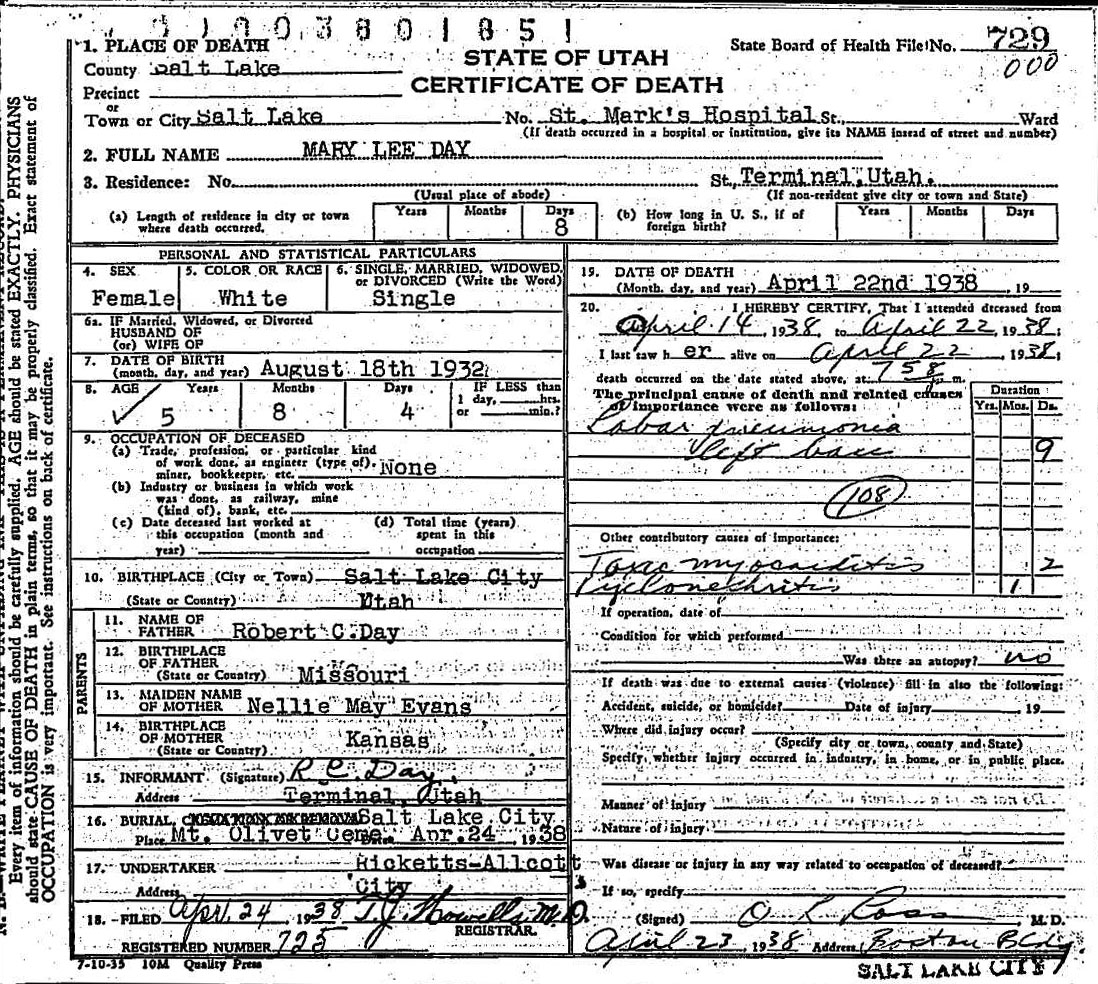 0 1 0 0 3 8 0 1 8 5 1
1. PLACE OF DEATH
County Salt Lake
Precinct
or
Town or City Salt Lake
STATE OF UTAH
CERTIFICATE OF DEATH
State Board of Health File No. 729
000
No. St. Mark's Hospital St., Ward
(If death occurred in a hospital or institution, give its NAME insead of street and number)
2. FULL NAME MARY LEE DAY
3. Residence: No. St, Terminal, Utah.
(Usual place of abode) (If non-resident give city or town and State)
(a) Length of residence in city or town where death occurred. Years Months Days 8
(b) How long in U. S., if of foreign birth? Years Months Days
PERSONAL AND STATISTICAL PARTICULARS
4. SEX 5. COLOR OR RACE 6. SINGLE, MARRIED, WIDOWED, or DIVORCED (Write the Word)
Female White Single
6a. IF Married, Widowed, or Divorced
HUSBAND OF
(or) WIFE OF
7. DATE OF BIRTH
(month, day, and year) August 18th 1932
8. AGE Years Months Days IF LESS than
1 day, hrs.
or min.?
5 8 4
9. OCCUPATION OF DECEASED
(a) Trade, profession, or particular kind
of work done, as engineer (type of),
miner, bookkeeper, etc. None
(b) Industry or business in which work
was done, as railway, mine
(kind of), bank, etc.
(c) Date deceased last worked at
this occupation (month and
year)
(d) Total time (years)
spent in this
occupation
10. BIRTHPLACE (City or Town) Salt Lake City
(State or Country) Utah
PARENTS
11. NAME OF
FATHER Robert C. Day
12. BIRTHPLACE
OF FATHER
(State or Country) Missouri
13. MAIDEN NAME
OF MOTHER Nellie May Evans
14. BIRTHPLACE
OF MOTHER
(State or Country) Kansas
15. INFORMANT (Signature) R C Day.
Address Terminal, Utah
16. BURIAL, Salt Lake City
Place Mt. Olivet Ceme. Apr. 24, 1938
17. UNDERTAKER Ricketts-Allcott
Address City
18. FILED Apr. 24, 1938 T.J. Howells M.D.
REGISTRAR.
REGISTERED NUMBER 725
7-10-35 10M Quality Press
19. DATE OF DEATH
(Month, day, and year) April 22nd 1938, 19
20. I HEREBY CERTIFY, That I attended deceased from
April 14, 1938 to April 22, 1938;
I last saw her alive on April 22, 1938;
death occurred on the date stated above, at 758 p. m.
The principal cause of death and related causes
of importance were as follows:
Duration
Yrs. Mos. Ds.
Lobar pneumonia
left base 9
108
Other contributory causes of importance:
Toxic myocarditis 2
Pyelonephritis 1
If operation, date of
Condition for which performed
Was there an autopsy? no
If death was due to external causes (violence) fill in also the following:
Accident, suicide, or homicide? Date of injury 19
Where did injury occur?
(Specify city or town, county and State)
Specify, whether injury occurred in industry, in home, or in public place.
Manner of injury
Nature of injury
Was disease or injury in any way related to occupation of deceased?
If so, specify
(Signed) O L Ross M. D.
April 23 1938 Address Boston Bldg
SALT LAKE CITY
Every item of information should be carefully supplied. AGE should be stated EXACTLY. PHYSICIANS
should state CAUSE OF DEATH in plain terms, so that it may be properly classified. Exact statement of
OCCUPATION is very important. See instructions on back of certificate.